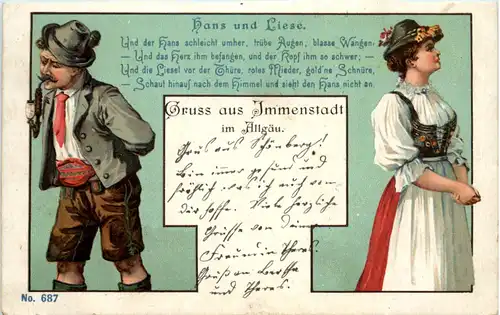 Hans und Liese.
Und der Hans schleicht umher, trübe Augen, blasse Wangen.
— Und das Herz ihm befangen, und der Kopf ihm so schwer; —
Und die Liesel vor der Thüre, rotes Mieder, gold'ne Schnüre,
— Schaut hinauf nach dem Himmel und sieht den Hans nicht an.
Gruss aus Immenstadt
im Allgäu.
Grus aus Schönberg!
bin immer gesund und
fröhlich was ich auch von
dir hoffe. Viele herzliche
Grüsse von deiner
Freundin Theres.
Gruß an Bertha
und Theres.
No. 687